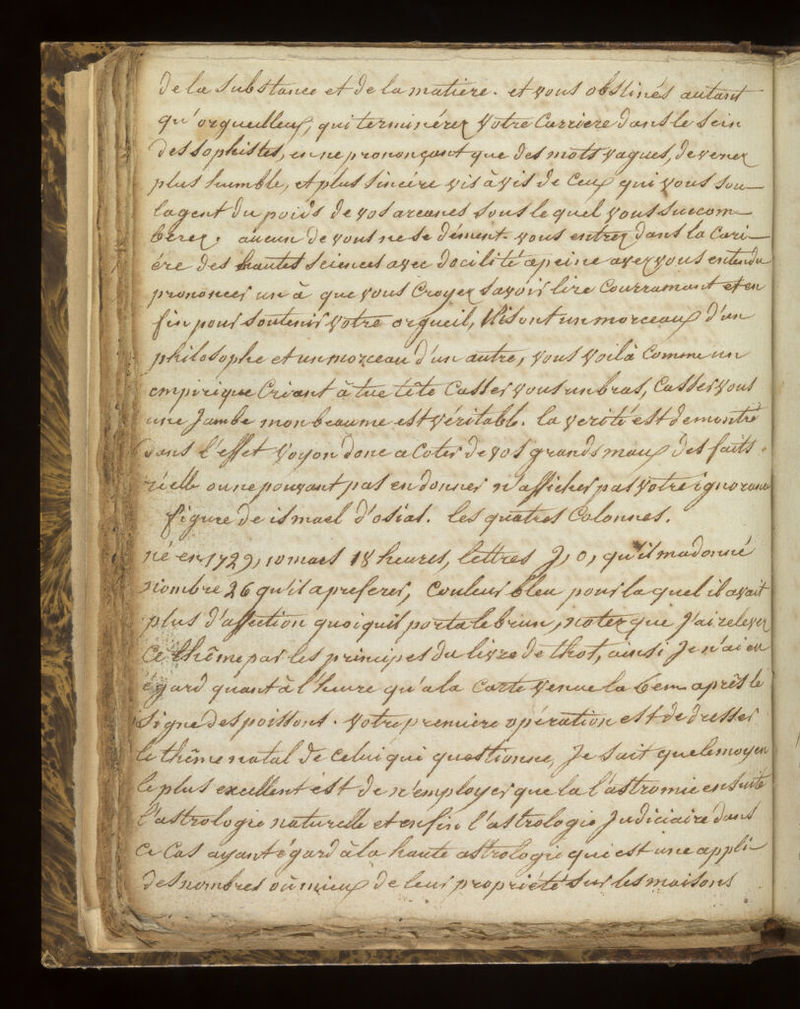 De la Substance et De la matière. et vous obstinés autant
qu'orgueilleux, qui terminérez Votre Carriere Dans le Sein
Des Sophistes, en ne prononçant que Des mots Vagues, Devenez
plus humble, et plus Sincére vis à vis De Ceux qui vous Sou—
lagent Du poids De vos arcanes Sous le quel vous Succom—
berez. aucun De vous ne Se Dément. vous entrez Dans la Cari—
ére Des hautes Sciences avec Docilité apeine avez vous entendu
prononcer un a que vous Croyez Savoir lire Couramant et en
fin pour Soutenir Votre orgueil, Disent un morceaux D'un
philosophe et un morceau D'un autre, vous voilà Comme un
empirique Criant à tue tête Casses vous un bras, Casses vous
une Jambe mon beaume est véritable. la verité est Demontré
Dans l'effet Voyon Donc a Coter De vos grands maux Des faits
réelle ou ne pouvant pas en Donner n'afficher pas Votre ignorance
figure De ismael D'osias. les quatres Colonnes.
né en 1729, 10 mars 18 heures, lettres J, O, qu'il ma Donné
Nombre 26 qu'il a preferer, Couleur Bleu pour la quel il avait
plus D'affection quoi quil porta le brun, noter que J'ai relever
Ce thême par les principes Du livre De thot, ainsi Je n'ai eu
égard quant à l'heure qu'a la Carte Venue la 6em après le
Signe Des poissons. Votre premiere opération est De Dresser
le thême natal De Celui qui questionne, Je Sait que le moyen
le plus excellent est De n'employer que la l'astromie ensuite
l'astrologie naturelle et enfin l'astrologie Judiciaire Dans
Ce Cas ayant égard à la haute astrologie qui est une appli—
Des nombres ou mieux De leur propriété Sur les maisons